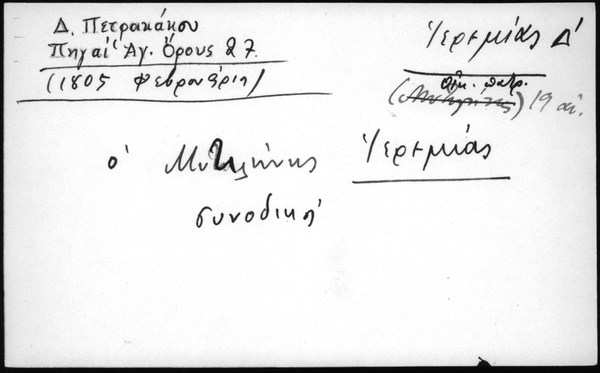 Δ. Πετρακάκου
Πηγαί Ἁγ. Ὄρους 27
(1805 Φεβρουάριῳ)
Ἱερεμίας Δ'
οἰκ. πατρ.
( ) 19 αἰ.
ὁ Μυτιλήνης Ἱερεμίας
συνοδική